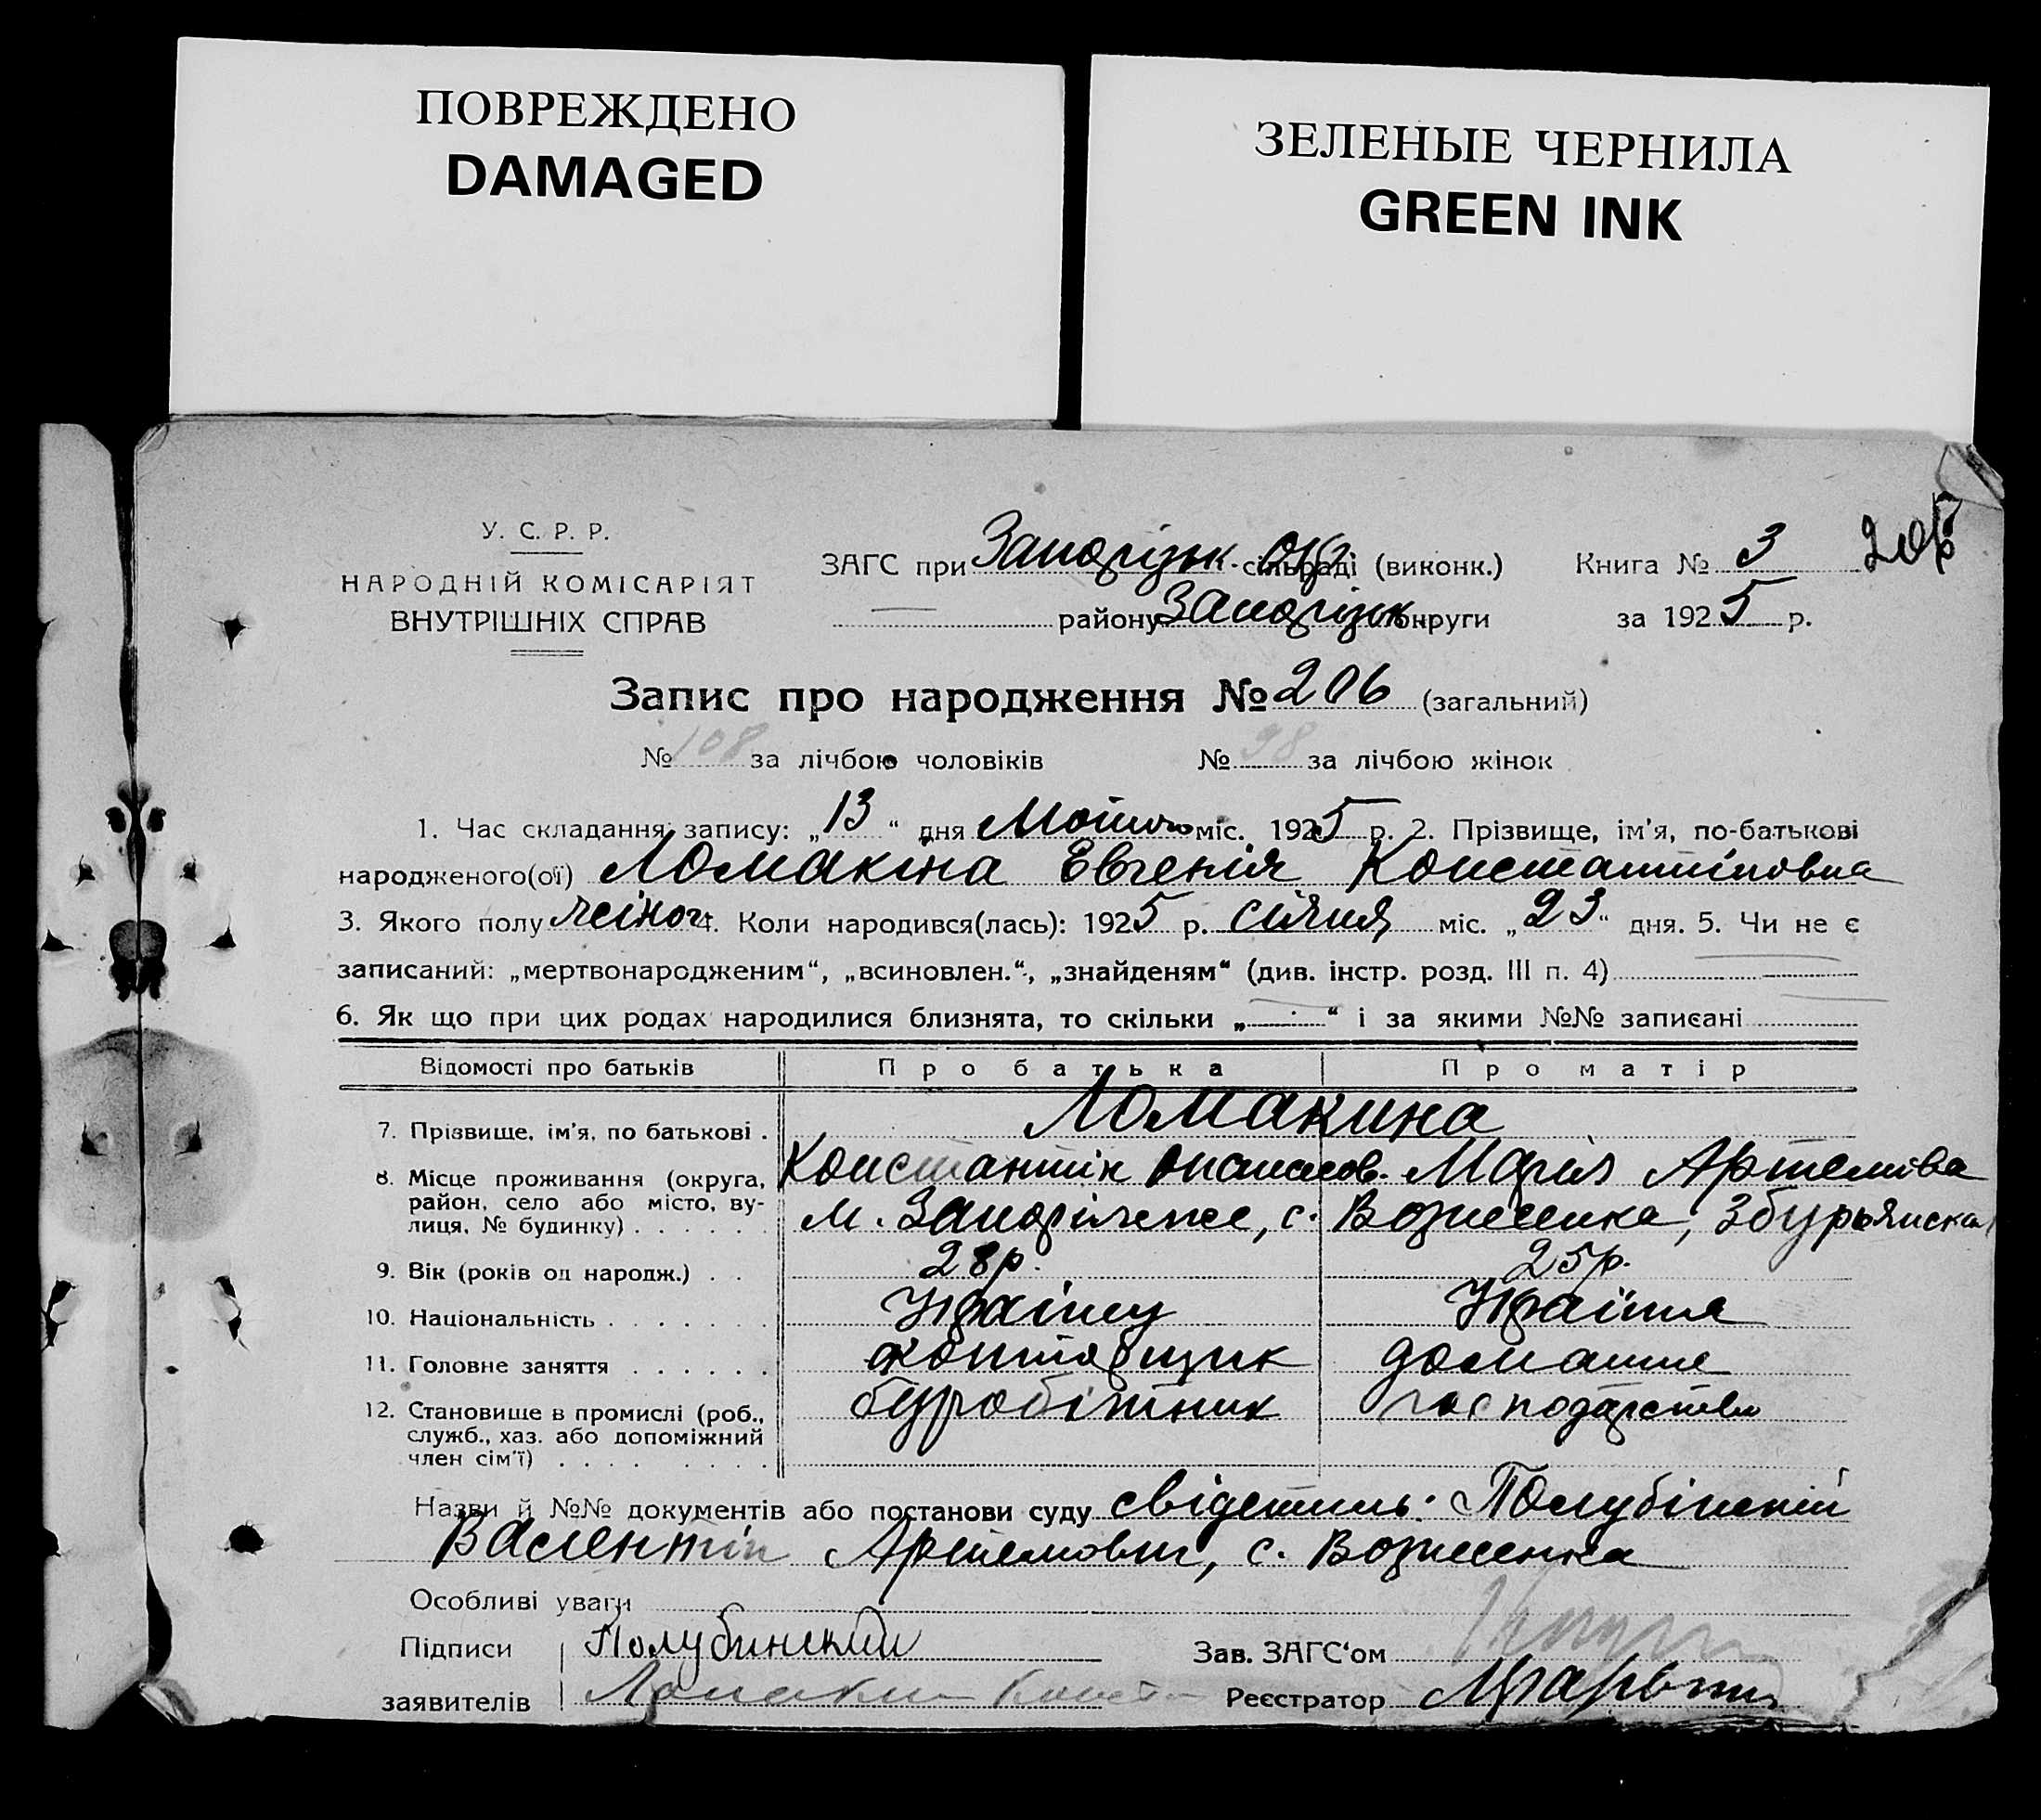 ПОВРЕЖДЕНО
DAMAGED
ЗЕЛЕНЫЕ ЧЕРНИЛА
GREEN INK
У. С. Р. Р.
НАРОДНІЙ КОМІСАРІЯТ
ВНУТРІШНІХ СПРАВ
ЗАГС при Запорізьк. окр. сільраді (виконк.) Книга № 3 206
району Запорізьк. округи за 1925 р.
Запис про народження № 206 (загальний)
№ 108 за лічбою чоловіків № 98 за лічбою жінок
1. Час складання запису: „13“ дня Лютого міс. 1925 р. 2. Прізвище, ім'я, по-батькові
народженого(ої) Ломакіна Евгенія Константіновна
3. Якого полу жіноч. 4. Коли народився(лась): 1925 р. січня міс. „23“ дня. 5. Чи не є
записаний: „мертвонародженим“, „всиновлен.“, „знайденям“ (див. інстр. розд. III п. 4)
6. Як що при цих родах народилися близнята, то скільки „—“ і за якими №№ записані
Відомості про батьків Про батька Про матір
7. Прізвище, ім'я, по батькові . Ломакина
Константін Опанасов. Марія Артемівна
8. Місце проживання (округа, район, село або місто, вулиця, № будинку) м. Запоріжжє, с. Вознесенка, Збурьянска
9. Вік (років од народж.) 28 р. 25 р.
10. Національність Українц Україння
11. Головне заняття домашнє
12. Становище в промислі (роб., служб., хаз. або допоміжний член сім'ї) господарство
Назви й №№ документів або постанови суду свідетиль: Полубінскій
Валентін Артемович, с. Вознесенка
Особливі уваги
Підписи Полубинский Зав. ЗАГС'ом
заявителів Ломакин Реєстратор